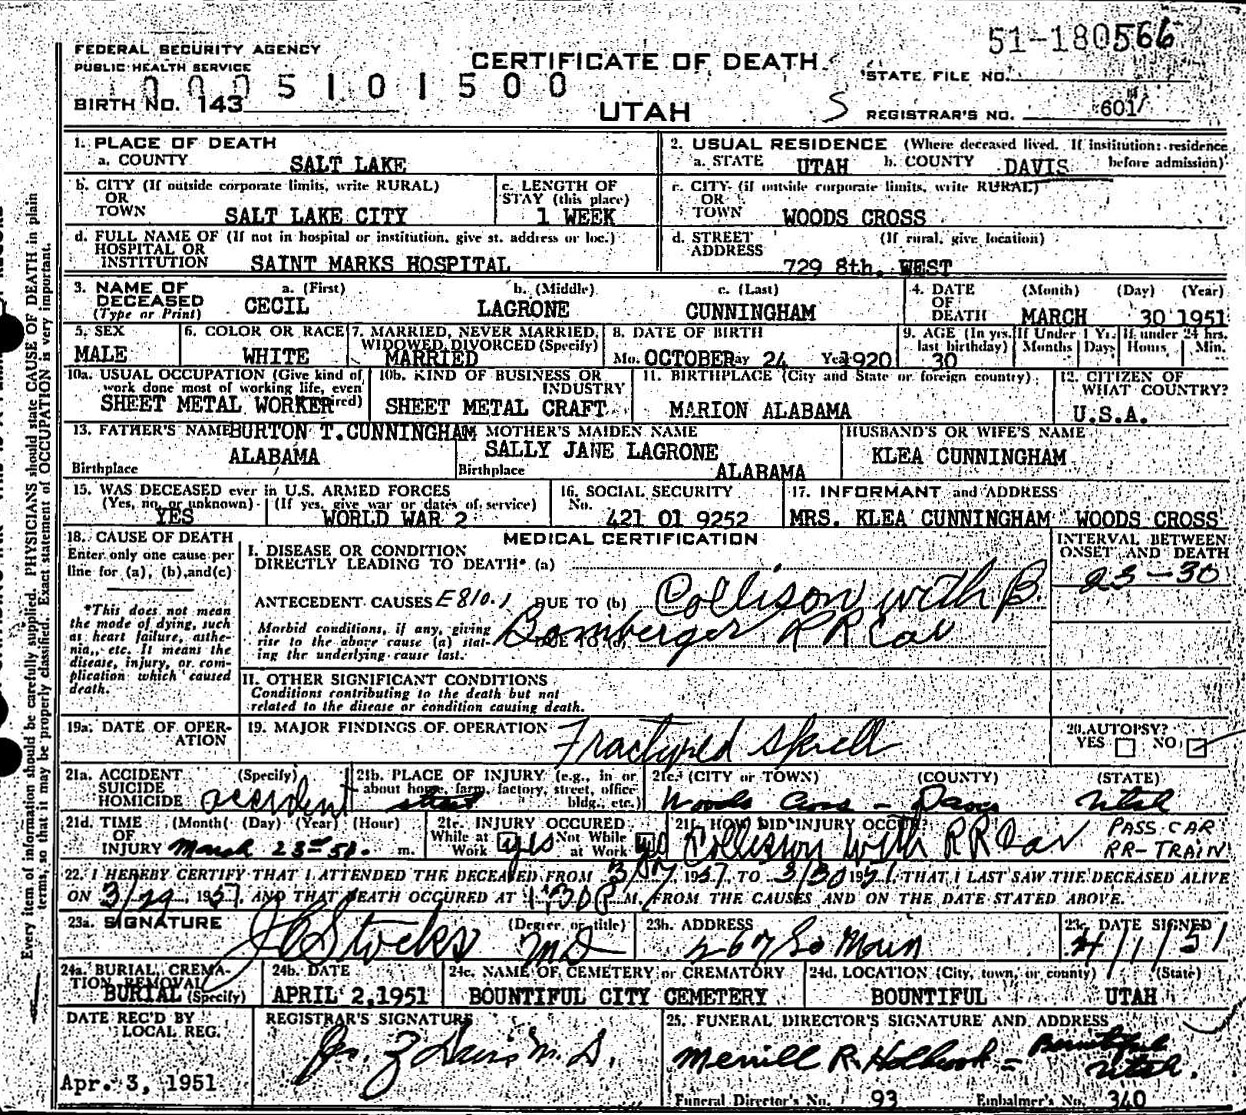 51-180566
FEDERAL SECURITY AGENCY
PUBLIC HEALTH SERVICE
CERTIFICATE OF DEATH
STATE FILE NO.
0005101500
BIRTH NO. 143
UTAH
S
REGISTRAR'S NO. 601
1. PLACE OF DEATH
a. COUNTY SALT LAKE
2. USUAL RESIDENCE (Where deceased lived. If institution: residence before admission)
a. STATE UTAH b. COUNTY DAVIS
b. CITY (If outside corporate limits, write RURAL)
OR
TOWN SALT LAKE CITY
c. LENGTH OF
STAY (this place)
1 WEEK
c. CITY (if outside corporate limits, write RURAL)
OR
TOWN WOODS CROSS
d. FULL NAME OF (If not in hospital or institution, give st. address or loc.)
HOSPITAL OR
INSTITUTION SAINT MARKS HOSPITAL
d. STREET (If rural, give location)
ADDRESS
729 8th. WEST
3. NAME OF
DECEASED
(Type or Print)
a. (First) b. (Middle) c. (Last)
CECIL LAGRONE CUNNINGHAM
4. DATE (Month) (Day) (Year)
OF
DEATH MARCH 30 1951
5. SEX
MALE
6. COLOR OR RACE
WHITE
7. MARRIED, NEVER MARRIED,
WIDOWED, DIVORCED (Specify)
MARRIED
8. DATE OF BIRTH
Mo. OCTOBER Day 24 Yr. 1920
9. AGE (In yrs. last birthday)
30
If Under 1 Yr. If under 24 hrs.
Months Days Hours Min.
10a. USUAL OCCUPATION (Give kind of
work done most of working life, even
SHEET METAL WORKER
10b. KIND OF BUSINESS OR
INDUSTRY
SHEET METAL CRAFT
11. BIRTHPLACE (City and State or foreign country)
MARION ALABAMA
12. CITIZEN OF
WHAT COUNTRY?
U.S.A.
13. FATHER'S NAME BURTON T.CUNNINGHAM
ALABAMA
Birthplace
MOTHER'S MAIDEN NAME
SALLY JANE LAGRONE
Birthplace ALABAMA
HUSBAND'S OR WIFE'S NAME
KLEA CUNNINGHAM
15. WAS DECEASED ever in U.S. ARMED FORCES
(Yes, no, or unknown) (If yes, give war or dates of service)
YES WORLD WAR 2
16. SOCIAL SECURITY
No. 421 01 9252
17. INFORMANT and ADDRESS
MRS. KLEA CUNNINGHAM WOODS CROSS
18. CAUSE OF DEATH
Enter only one cause per
line for (a), (b), and (c)
*This does not mean
the mode of dying, such
as heart failure, asthe-
nia, etc. It means the
disease, injury, or com-
plication which caused
death.
MEDICAL CERTIFICATION
I. DISEASE OR CONDITION
DIRECTLY LEADING TO DEATH* (a)
ANTECEDENT CAUSES E810.1 DUE TO (b) Collison with B.
Bomberger RR Car
Morbid conditions, if any, giving
rise to the above cause (a) stat-
ing the underlying cause last.
DUE TO (c)
II. OTHER SIGNIFICANT CONDITIONS
Conditions contributing to the death but not
related to the disease or condition causing death.
INTERVAL BETWEEN
ONSET AND DEATH
23-30
19a. DATE OF OPER-
ATION
19. MAJOR FINDINGS OF OPERATION Fractured Skull
20. AUTOPSY?
YES NO
21a. ACCIDENT (Specify)
SUICIDE
HOMICIDE accident
21b. PLACE OF INJURY (e.g., in or
about home, farm, factory, street, office
bldg., etc.)
street
21c. (CITY or TOWN) (COUNTY) (STATE)
Woods Cross - Davis Utah
21d. TIME (Month) (Day) (Year) (Hour)
OF
INJURY March 23rd 51. m.
21e. INJURY OCCURED
While at Work Not While at Work
yes
21f. HOW DID INJURY OCCUR?
Collision with RR Car
PASS. CAR
RR-TRAIN
22. I HEREBY CERTIFY THAT I ATTENDED THE DECEASED FROM 1951 TO 3/30 1951 THAT I LAST SAW THE DECEASED ALIVE
ON 3/29, 1951. AND THAT DEATH OCCURED AT 1:30 P M., FROM THE CAUSES AND ON THE DATE STATED ABOVE.
23a. SIGNATURE (Degree or title)
J C Stocks MD
23b. ADDRESS
267 So Main
23c. DATE SIGNED
4/1/51
24a. BURIAL, CREMA-
TION, REMOVAL
BURIAL (Specify)
24b. DATE
APRIL 2,1951
24c. NAME OF CEMETERY or CREMATORY
BOUNTIFUL CITY CEMETERY
24d. LOCATION (City, town, or county) (State)
BOUNTIFUL UTAH
DATE REC'D BY
LOCAL REG.
Apr. 3, 1951
REGISTRAR'S SIGNATURE
Jr. Z Davis M. D.
25. FUNERAL DIRECTOR'S SIGNATURE AND ADDRESS
Merrill R. Holbrook - Bountiful
Utah.
Funeral Director's No. 93 Embalmer's No. 340
Every item of information should be carefully supplied. PHYSICIANS should state CAUSE OF DEATH in plain
terms, so that it may be properly classified. Exact statement of OCCUPATION is very important.